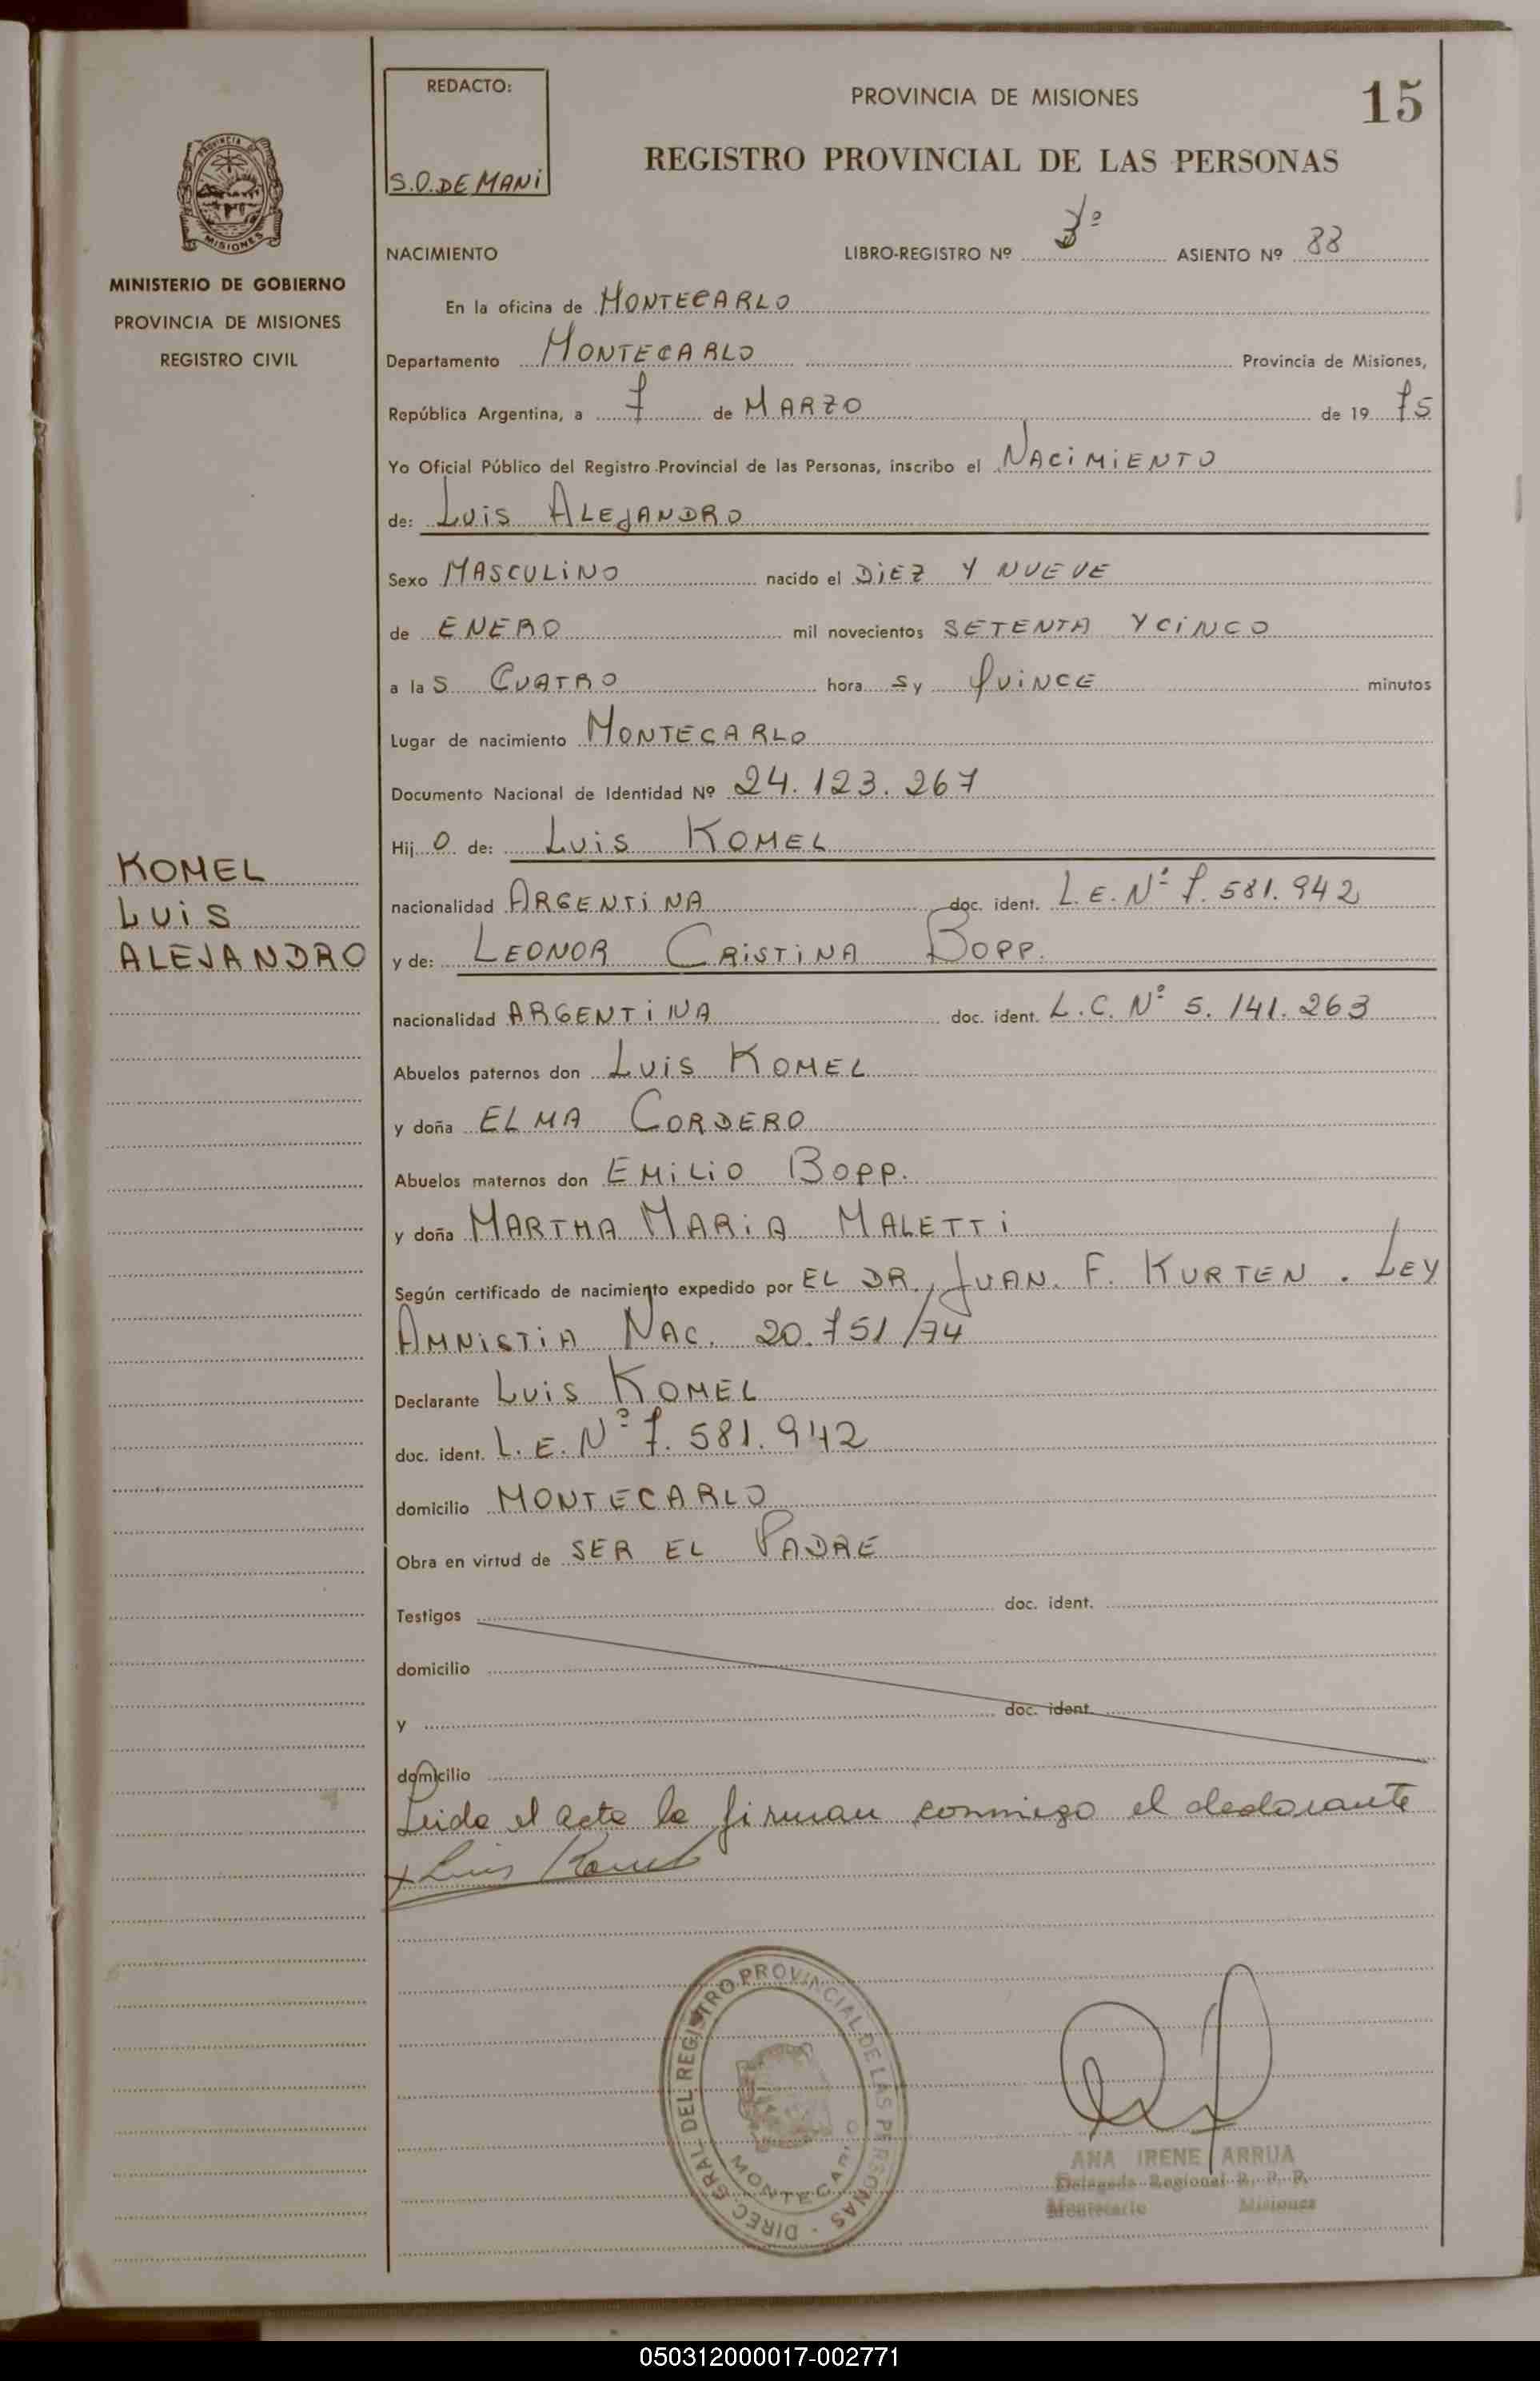 REDACTO:
S.O. DE MANI
PROVINCIA DE MISIONES
15
REGISTRO PROVINCIAL DE LAS PERSONAS
PROVINCIA DE
MISIONES
MINISTERIO DE GOBIERNO
PROVINCIA DE MISIONES
REGISTRO CIVIL
NACIMIENTO LIBRO-REGISTRO Nº 3º ASIENTO Nº 88
En la oficina de MONTECARLO
Departamento MONTECARLO Provincia de Misiones,
República Argentina, a 7 de MARZO de 19 75
Yo Oficial Público del Registro Provincial de las Personas, inscribo el NACIMIENTO
de: LUIS ALEJANDRO
Sexo MASCULINO nacido el DIEZ Y NUEVE
de ENERO mil novecientos SETENTA Y CINCO
a las CUATRO hora s y QUINCE minutos
Lugar de nacimiento MONTECARLO
Documento Nacional de Identidad Nº 24.123.267
Hij O de: LUIS KOMEL
KOMEL
LUIS
ALEJANDRO
nacionalidad ARGENTINA doc. ident. L.E. Nº 7.581.942
y de: LEONOR CRISTINA BOPP.
nacionalidad ARGENTINA doc. ident. L.C. Nº 5.141.263
Abuelos paternos don LUIS KOMEL
y doña ELMA CORDERO
Abuelos maternos don EMILIO BOPP.
y doña MARTHA MARIA MALETTI
Según certificado de nacimiento expedido por EL DR. JUAN. F. KURTEN . LEY
AMNISTIA NAC. 20.751/74
Declarante LUIS KOMEL
doc. ident. L.E. Nº 7.581.942
domicilio MONTECARLO
Obra en virtud de SER EL PADRE
Testigos doc. ident.
domicilio
y doc. ident.
domicilio
Leida el acta la firman conmigo el declarante
Luis Komel
DIREC. GRAL. DEL REGISTRO PROVINCIAL DE LAS PERSONAS
MONTECARLO
ANA IRENE ARRUA
Delegada Regional R. P. P.
Montecarlo Misiones
050312000017-002771